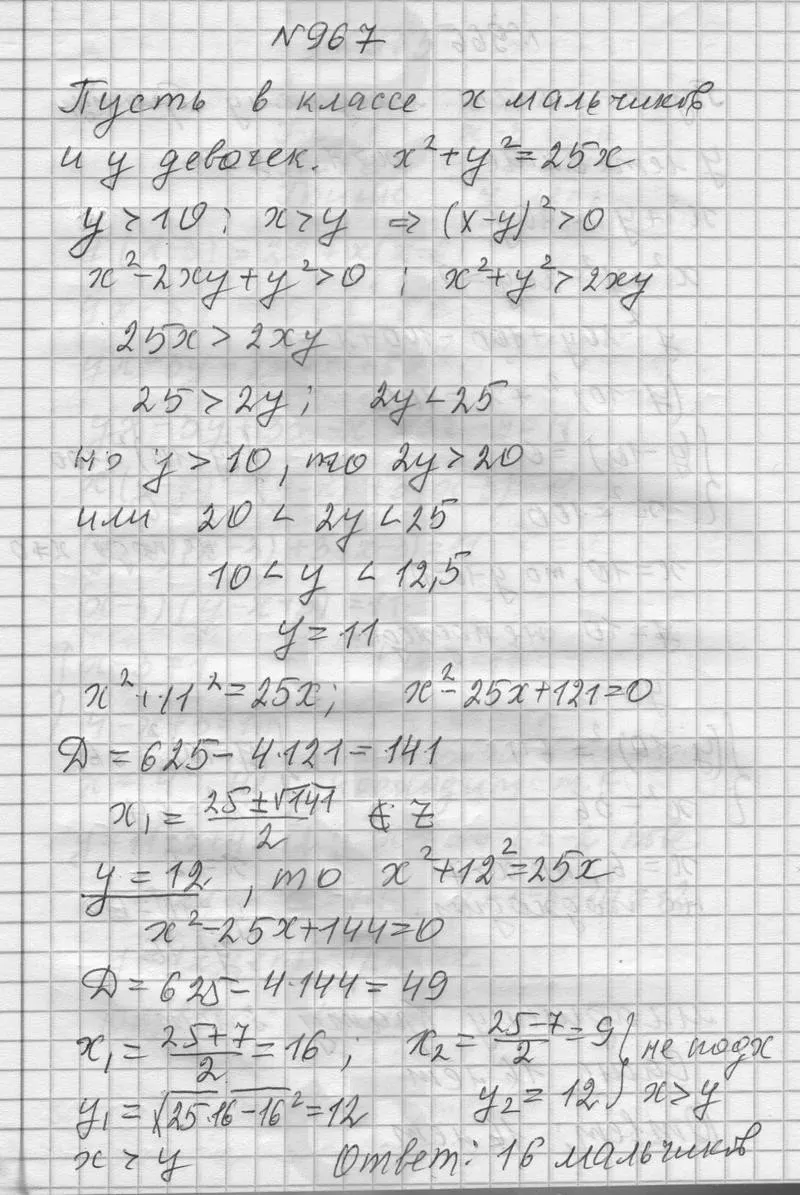 №967
Пусть в классе x мальчиков
и y девочек. x²+y²=25x
y>10; x>y ⇒ (x-y)²>0
x²-2xy+y²>0 ; x²+y²>2xy
25x>2xy
25>2y; 2y<25
но y>10, то 2y>20
или 20<2y<25
10<y<12,5
y=11
x²+11²=25x; x²-25x+121=0
Д=625-4·121=141
x₁=(25±√141)/2 ∉ Z
y=12, то x²+12²=25x
x²-25x+144=0
Д=625-4·144=49
x₁=(25+7)/2=16; x₂=(25-7)/2=9 } не подх
y₁=√(25·16-16²)=12 y₂=12 } x>y
x>y Ответ: 16 мальчиков